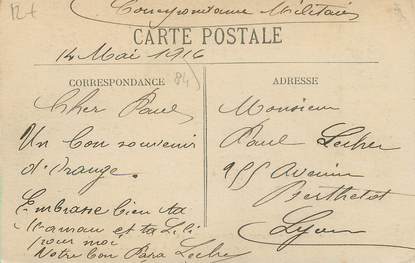 12+
Correspondance Militaire
CARTE POSTALE
14 Mai 1916
CORRESPONDANCE
84
ADRESSE
Cher Paul
Un bon souvenir
d'Orange.
Embrasse bien ta
maman et ta Lili
pour moi
Votre bon Papa Leclere
Monsieur
Paul Leclere
255 Avenue
Berthelot
Lyon